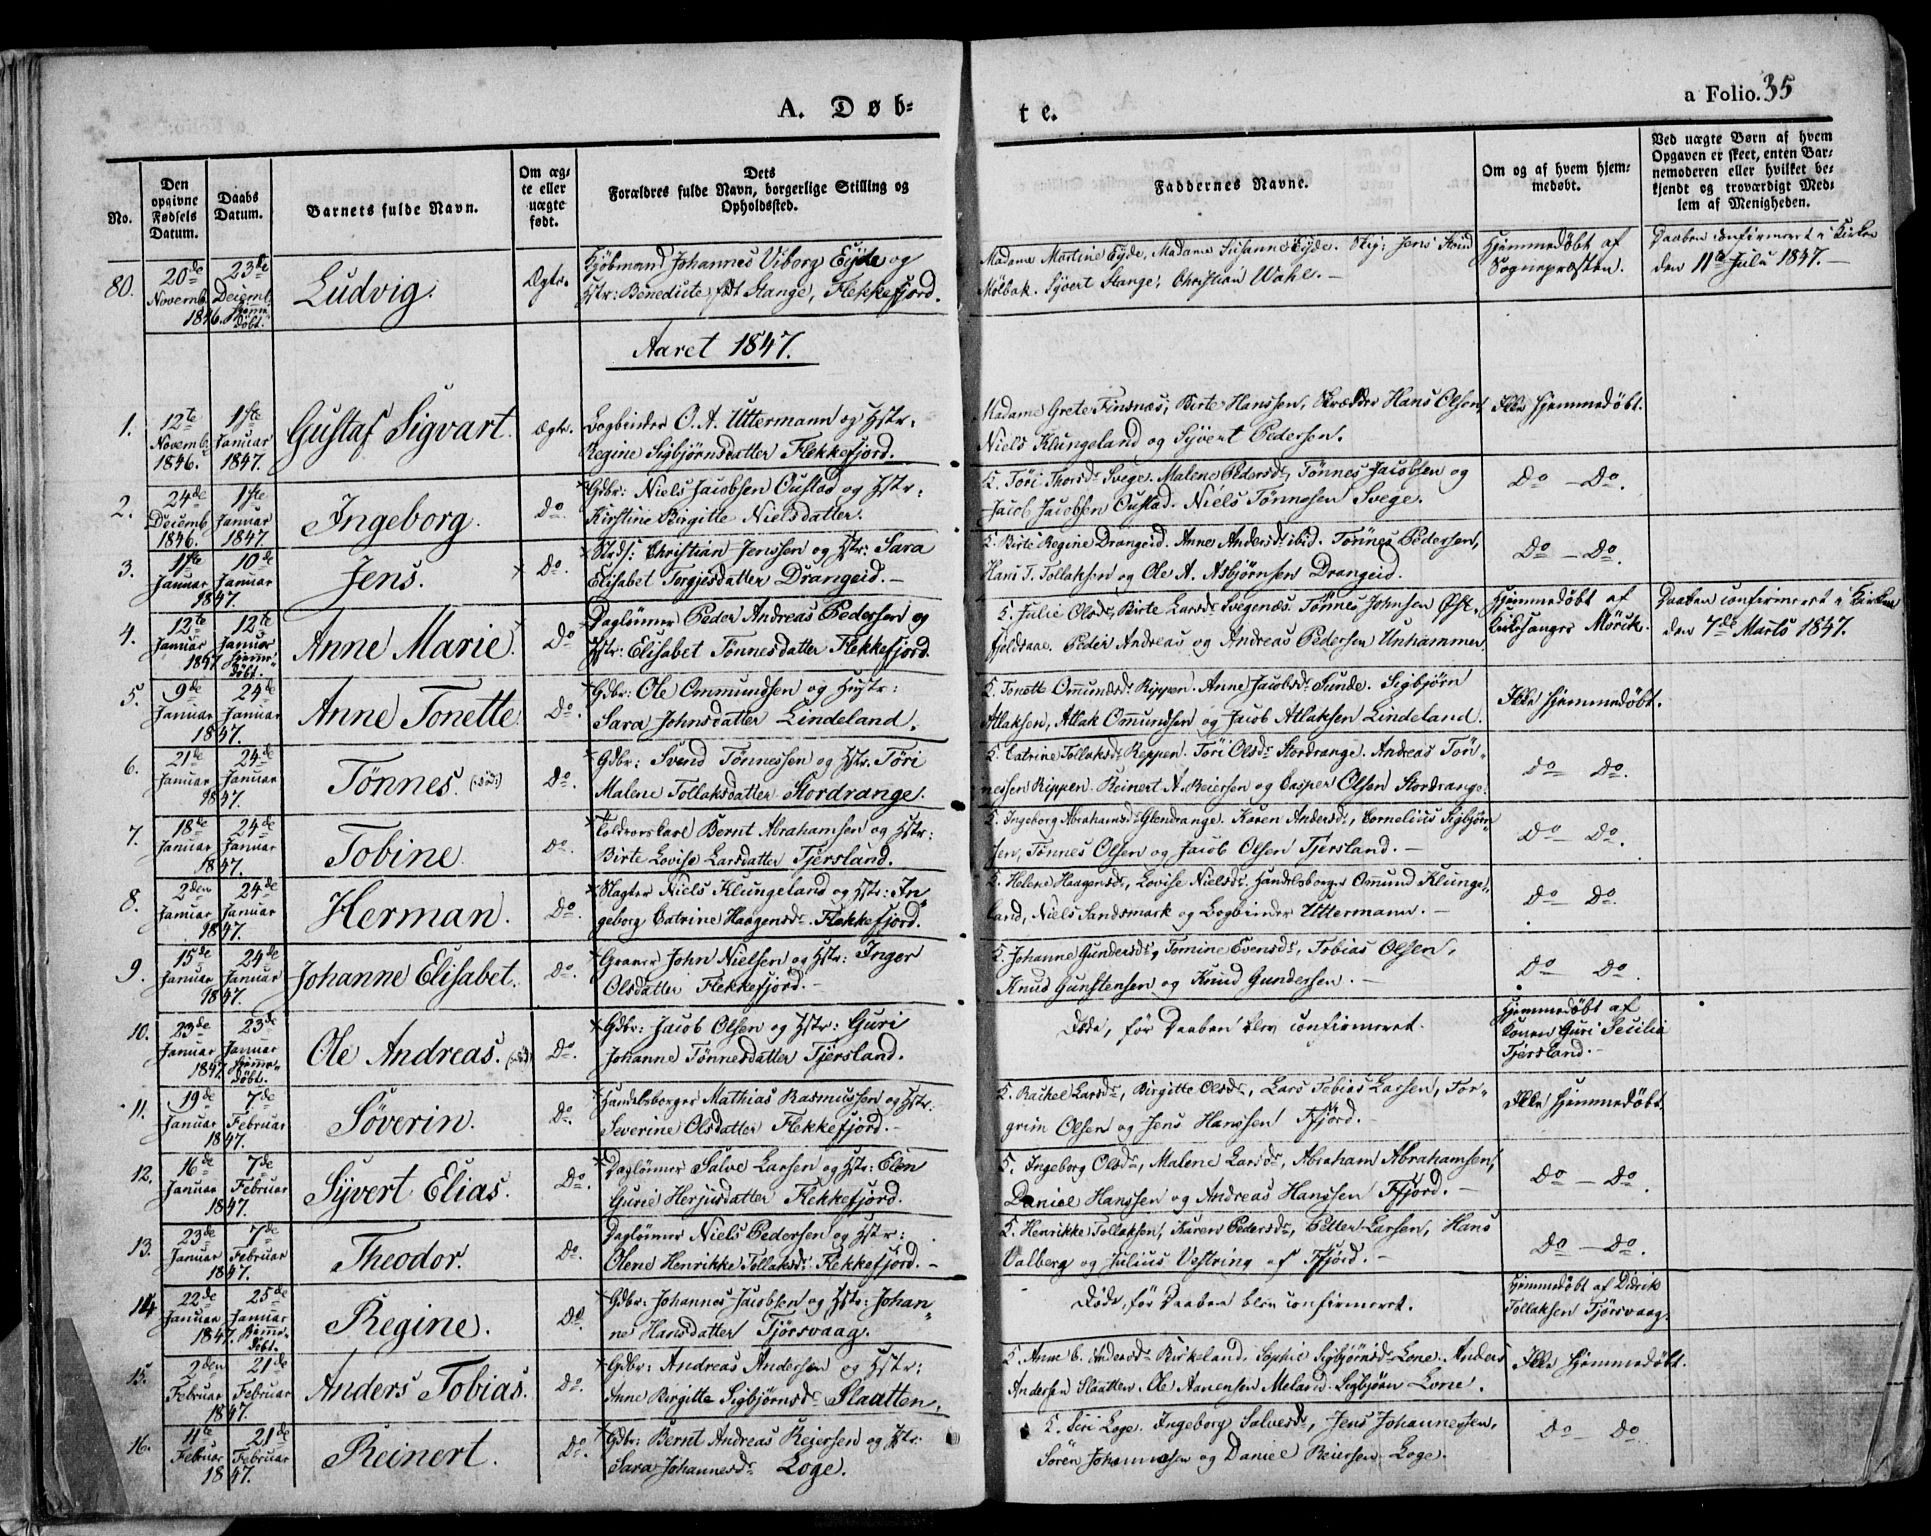 A. Døb-
te.
a Folio. 35
No.
Den opgivne Fødsels Datum.
Daabs Datum.
Barnets fulde Navn.
Om ægte eller uægte født.
Dets Forældres fulde Navn, borgerlige Stilling og Opholdssted.
Faddernes Navne.
Om og af hvem hjemmedøbt.
Ved uægte Børn af hvem Opgaven er skeet, enten Barnemoderen eller hvilket bekjendt og troværdigt Medlem af Menigheden.
80. 20de Novemb. 1846. 23de Decemb. Hjemmedøbt. Ludvig. Ægte.
Kjøbmand Johannes Viborg Eyde og
Hstr: Benedicte født Stange, Flekkefjord.
Madame Martine Eyde, Madame Susanne Eyde. Jens
Mølbak. Sjvert Stange, Christian Wahl. —
Hjemmedøbt af
Sognepræsten.
Daaben confirmeret i Kirken
den 11te Julu 1847. —
Aaret 1847.
1. 12te Novemb. 1846. 1ste Januar 1847. Gustaf Sigvart. Ægte.
Bogbinder O. A. Uttermann og Hstr.
Regine Sigbjørnsdatter Flekkefjord.
Madame Grete Finsnæs, Birte Hanssen, Skrædder Hans Olsen,
Niels Klungeland og Sjvert Pedersen.
Ikke hjemmedøbt.
2. 24de Decemb. 1846. 1ste Januar 1847. Ingeborg. Do.
Gdbr: Niels Jacobsen Oustad og Hstr:
Kirstine Birgitte Nielsdatter.
5. Tøri Thorsdr Svege. Malene Pedersdr, Tønnes Jacobsen og
Jacob Jacobsen Oustad. Niels Tønnesen Svege.
Do — Do.
3. 1ste Januar 10de Januar 1847. Jens. Do.
Christian Jenssen og Hstr: Sara
Elisabet Torgjesdatter Drangeid. —
5. Birte Regine Drangeid. Anne Andersdr ibid. Tønnes Pedersen,
Hans T. Tollaksen og Ole A. Asbjørnsen Drangeid.
Do — Do.
4. 12te Januar 1847 12te Januar Hjemmedøbt. Anne Marie. Do
Daglønner Peder Andreas Pedersen og
Hstr: Elisabet Tønnesdatter Flekkefjord.
5. Julie Olsdr, Birte Larsdr Svegenæs. Tønnes Johnsen Øst-
fjeldsaae. Peder Andreas og Andreas Pedersen Unhammer.
Hjemmedøbt af
Kirkesanger Mörch.
Daaben confirmeret i Kirken
den 7de Marts 1847.
5. 9de Januar 24de Januar 1847. Anne Tonette. Do.
Gdbr: Ole Ommundsen og Hustr:
Sara Johnsdatter Lindeland.
5. Tonette Omundsdr Rippen. Anne Jacobsdr Sunde. Sigbjørn
Atlaksen, Atlak Omundsen og Jacob Atlaksen Lindeland.
Ikke hjemmedøbt.
6. 21de Januar 24de Januar 1847. Tønnes. (: død :) Do.
Gdbr: Svend Tønnessen og Hstr. Tøri
Malene Tollaksdatter Stordrange.
5. Catrine Tollaksdr Reppen. Tøri Olsdr Stordrange. Andreas Tøn-
nessen Rippen. Reinert A. Reiersen og Casper Olsen Stordrange.
Do Do.
7. 18de Januar 24de Januar 1847. Tobine. Do.
Toldrorskarl Bernt Abrahamsen og Hstr:
Birte Lovise Larsdatter Tjersland.
5. Ingeborg Abrahamsdr Glendrange. Karen Andersdr, Cornelius Sigbjørn-
sen, Tønnes Olsen og Jacob Olsen Tjersland. —
Do Do.
8. 2den Januar 24de Januar 1847. Herman. Do.
Slagter Niels Klungeland og Hstr: In-
geborg Catrine Haagensdr Flekkefjord.
5. Helene Haagensdr, Lovise Nielsdr. Handelsborger Omund Klunge-
land, Niels Sandsmark og Bogbinder Uttermann. —
Do Do.
9. 15de Januar 24de Januar 1847. Johanne Elisabet. Do.
Graver John Nielsen og Hstr: Inger
Olsdatter Flekkefjord. —
5. Johanne Gundersdr, Tomine Evensdr, Tobias Olsen,
Knud Gunstensen og Knud Gundersen. —
Do Do.
10. 23de Januar 1847. 23de Januar Hjemmedøbt. Ole Andreas. (: død :) Do.
Gdbr: Jacob Olsen og Hstr: Guri
Johanne Tønnesdatter Tjersland.
Døde, før Daaben blev confirmeret.
Hjemmedøbt af
Konen Guri Secilia
Tjersland. —
11. 19de Januar 7de Februar 1847. Søverin. Do.
Handelsborger Mathias Rasmussen og Hstr:
Severine Olsdatter Flekkefjord. —
5. Rachel Larsdr, Birgitte Olsdr, Lars Tobias Larsen, Tor-
grim Olsen og Jens Hanssen Ffjord. —
Ikke hjemmedøbt.
12. 16de Januar 7de Februar 1847. Sjvert Elias. Do.
Daglønner Salve Larsen og Hstr: Elen
Gurie Herjusdatter Flekkefjord.
5. Ingeborg Olsdr, Malene Larsdr, Abraham Abrahamsen,
Daniel Hanssen og Andreas Hanssen Ffjord. —
Do — Do.
13. 23de Januar 7de Februar 1847. Theodor. Do.
Daglønner Niels Pedersen og Hstr:
Olene Henrikke Tollaksdr. Flekkefjord. —
5. Henrikke Tollaksen, Karen Pedersdr, Petter Larsen, Hans
Valberg og Julius Vestring af Ffjord. —
Do — Do.
14. 22de Januar 1847. 25de Januar Hjemmedøbt. Regine. Do.
Gdbr: Johannes Jacobsen og Hstr: Johan-
ne Hansdatter Tjørsvaag.
Døde, før Daaben blev confirmeret.
Hjemmedøbt af Didrik
Tollaksen Tjørsvaag.
15. 2den Februar 21de Februar 1847. Anders Tobias. Do.
Gdbr: Andreas Andersen og Hstr:
Anne Birgitte Sigbjørnsdr Slaatten.
5. Anne C. Andersdr Birkeland. Sophie Sigbjørnsdr Lone. Anders
Andersen Slaatten. Ole Aanensen Meland. Sigbjørn Lone.
Ikke hjemmedøbt.
16. 11te Februar 21de Februar 1847. Reinert. Do.
Gdbr: Bernt Andreas Reiersen og Hstr:
Sara Johannesdr Loge.
5. Siri Loge. Ingeborg Salvesdr, Jens Johannessen,
Søren Johannesen og Daniel Reiersen Loge.
Do Do.